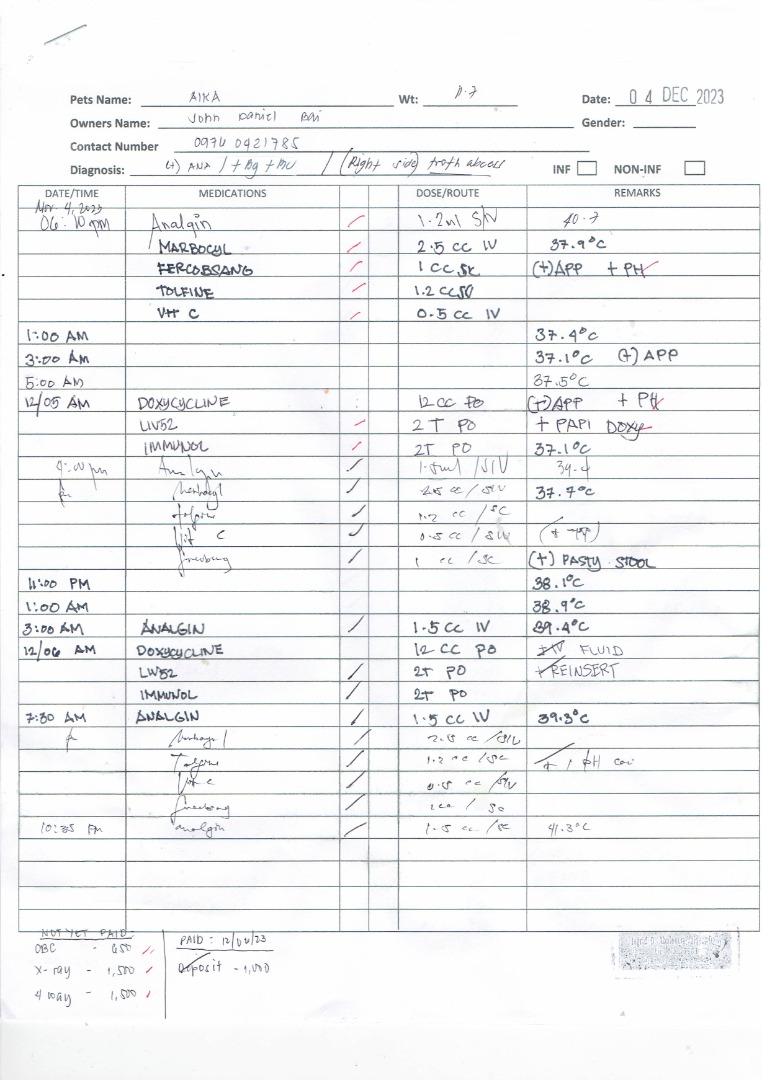 Pets Name: AIKA Wt: 11.7 Date: 04 DEC 2023
Owners Name: John Daniel Gender:
Contact Number 0976 0421785
Diagnosis: (+) ANA / + Bg + / (Right side) troth abcess INF NON-INF
DATE/TIME MEDICATIONS DOSE/ROUTE REMARKS
Nov. 4, 2023
06:10 pm Analgin 1.2ml S/V 40.7
MARBOCYL 2.5 cc IV 37.9°C
FERCOBSANG 1 CC SC (+) APP + PH
TOLFINE 1.2 CC SC
VIT C 0.5 cc IV
1:00 AM 37.4°C
3:00 AM 37.1°C (+) APP
5:00 AM 37.5°C
12/05 AM DOXYCYCLINE 12 CC PO (+) APP + PH
LIV52 2 T PO + PAPI DOXY
IMMUNOL 2T PO 37.1°C
pm Analgin 1.5ml /SIV 39.4
Marbocyl 2.5 cc / SIV 37.7°C
Tolfine 1.2 cc / SC
Vit C 0.5 cc / SIV
1 cc / SC (+) PASTY STOOL
11:00 PM 38.1°C
1:00 AM 38.9°C
3:00 AM ANALGIN 1.5 CC IV 39.4°C
12/06 AM DOXYCYCLINE 12 CC PO + IV FLUID
LIV52 2T PO + REINSERT
IMMUNOL 2T PO
7:30 AM ANALGIN 1.5 CC IV 39.3°C
Marbocyl 2.5 cc /SIV
Tolfine 1.2 cc /SC + PH
Vit C 0.5 cc /SIV
/ SC
10:35 PM analgin 1.5 cc /SC 41.3°C
NOT YET PAID
CBC - 650
X-ray - 1,500
4 way - 1,500
PAID: 12/04/23
Deposit - 1,000